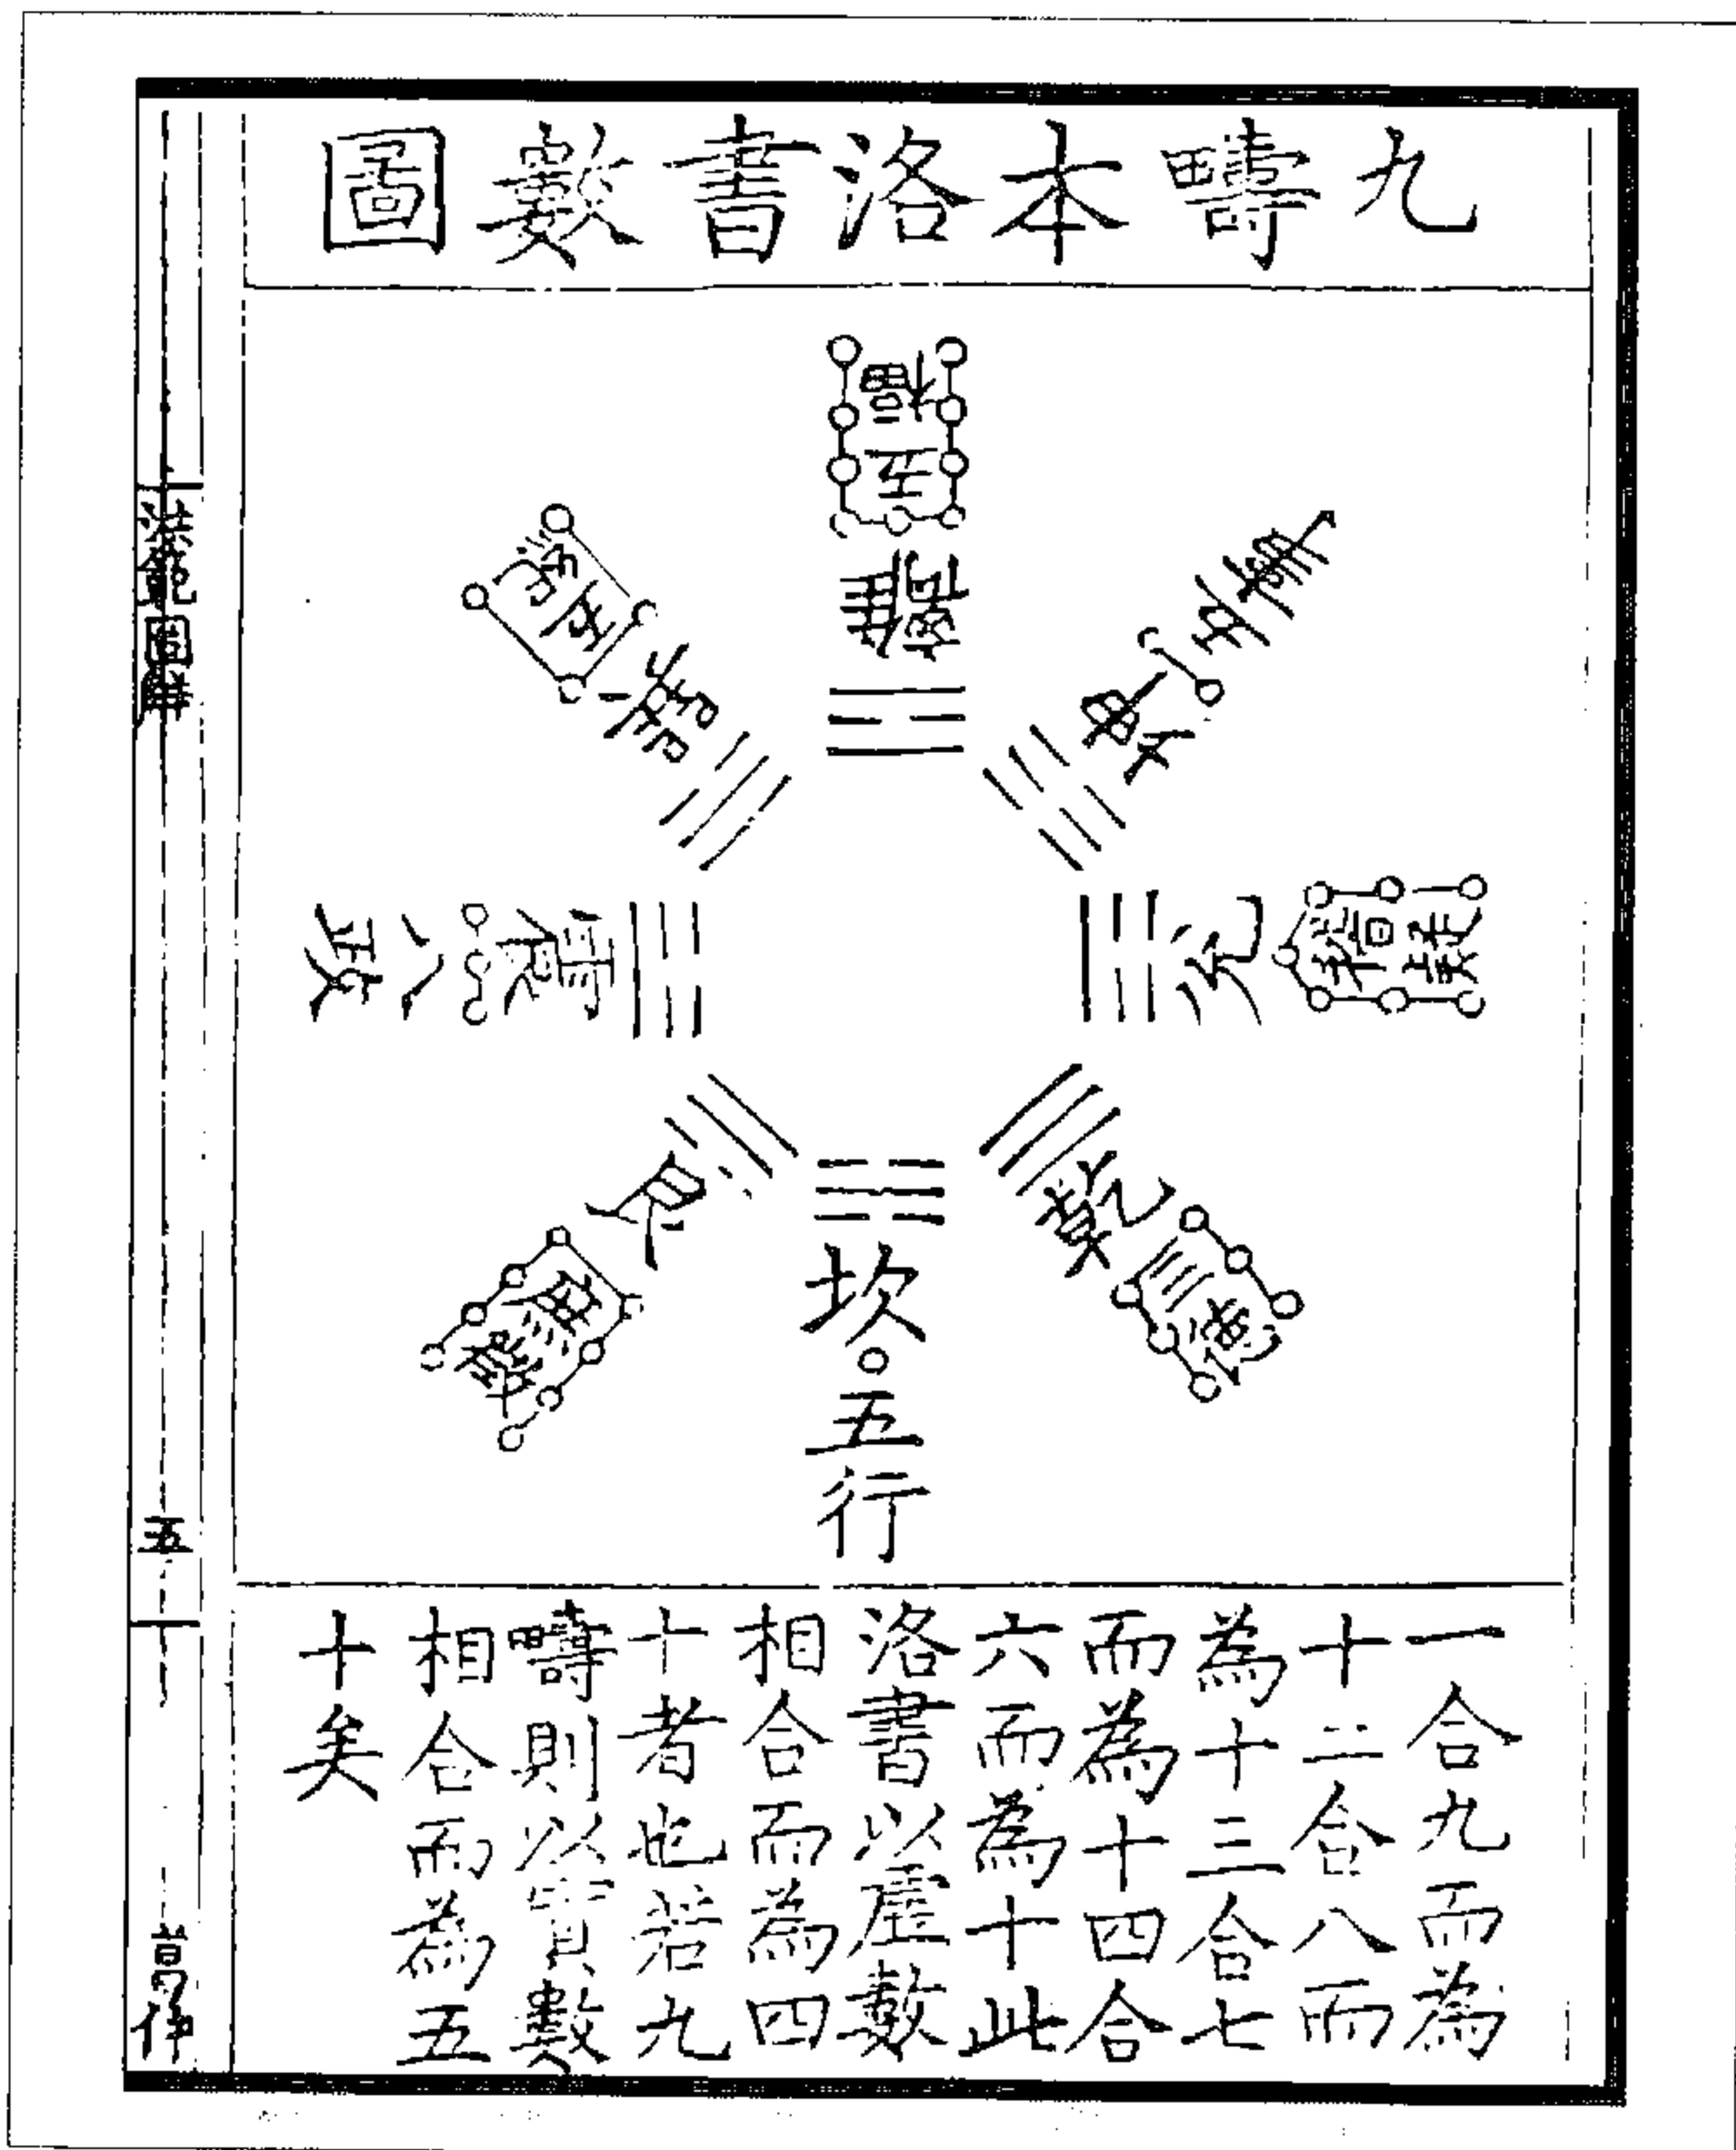 九疇本洛書數圖
離五福
坤五事
兌稽疑
乾三德
坎五行
艮庶徵
震八政
巽五紀
一合九而為
十二合八而
為十三合七
而為十四合
六而為十此
洛書以虛數
相合而為四
十者也若九
疇則以實數
相合而為五
十矣
洪範圖解
五